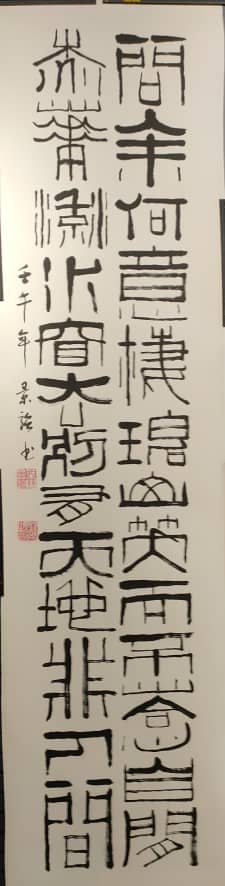 問余何意棲碧山笑而不荅心自閒
桃華流水窅去別有天地非人間
壬午年 景 书